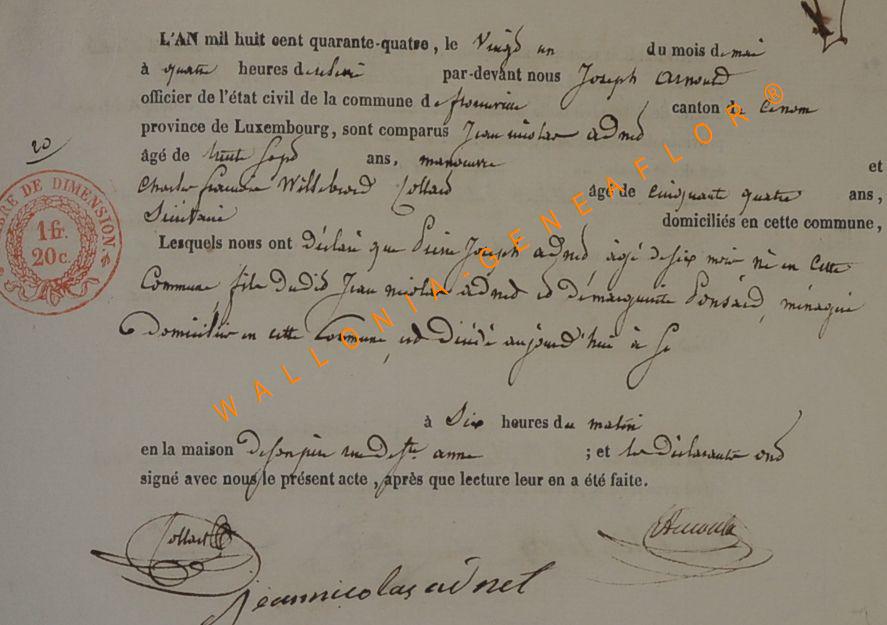 L'AN mil huit cent quarante-quatre, le Vingt un du mois de mai
à quatre heures du soir par-devant nous Joseph Arnould
officier de l'état civil de la commune de canton de
province de Luxembourg, sont comparus Jean nicolas adnet
20
âgé de trente sept ans, manoeuvre et
Charles françois Willebrord Collard âgé de cinquante quatre ans,
domiciliés en cette commune,
Lesquels nous ont déclaré que Pierre Joseph adnet âgé de six mois né en cette
Commune fils dudit Jean nicolas adnet et de marguerite Ponsard, ménagère
Domiciliés en cette Commune, est décédé aujourd'hui à
à Six heures du matin
en la maison de son père rue de ste anne ; et les déclarants ont
signé avec nous le présent acte, après que lecture leur en a été faite.
Collard
Arnould
jeannicolas adnet
TIMBRE DE DIMENSION.
1 fr.
20 c.
WALLONIA-GENEAFLOR®